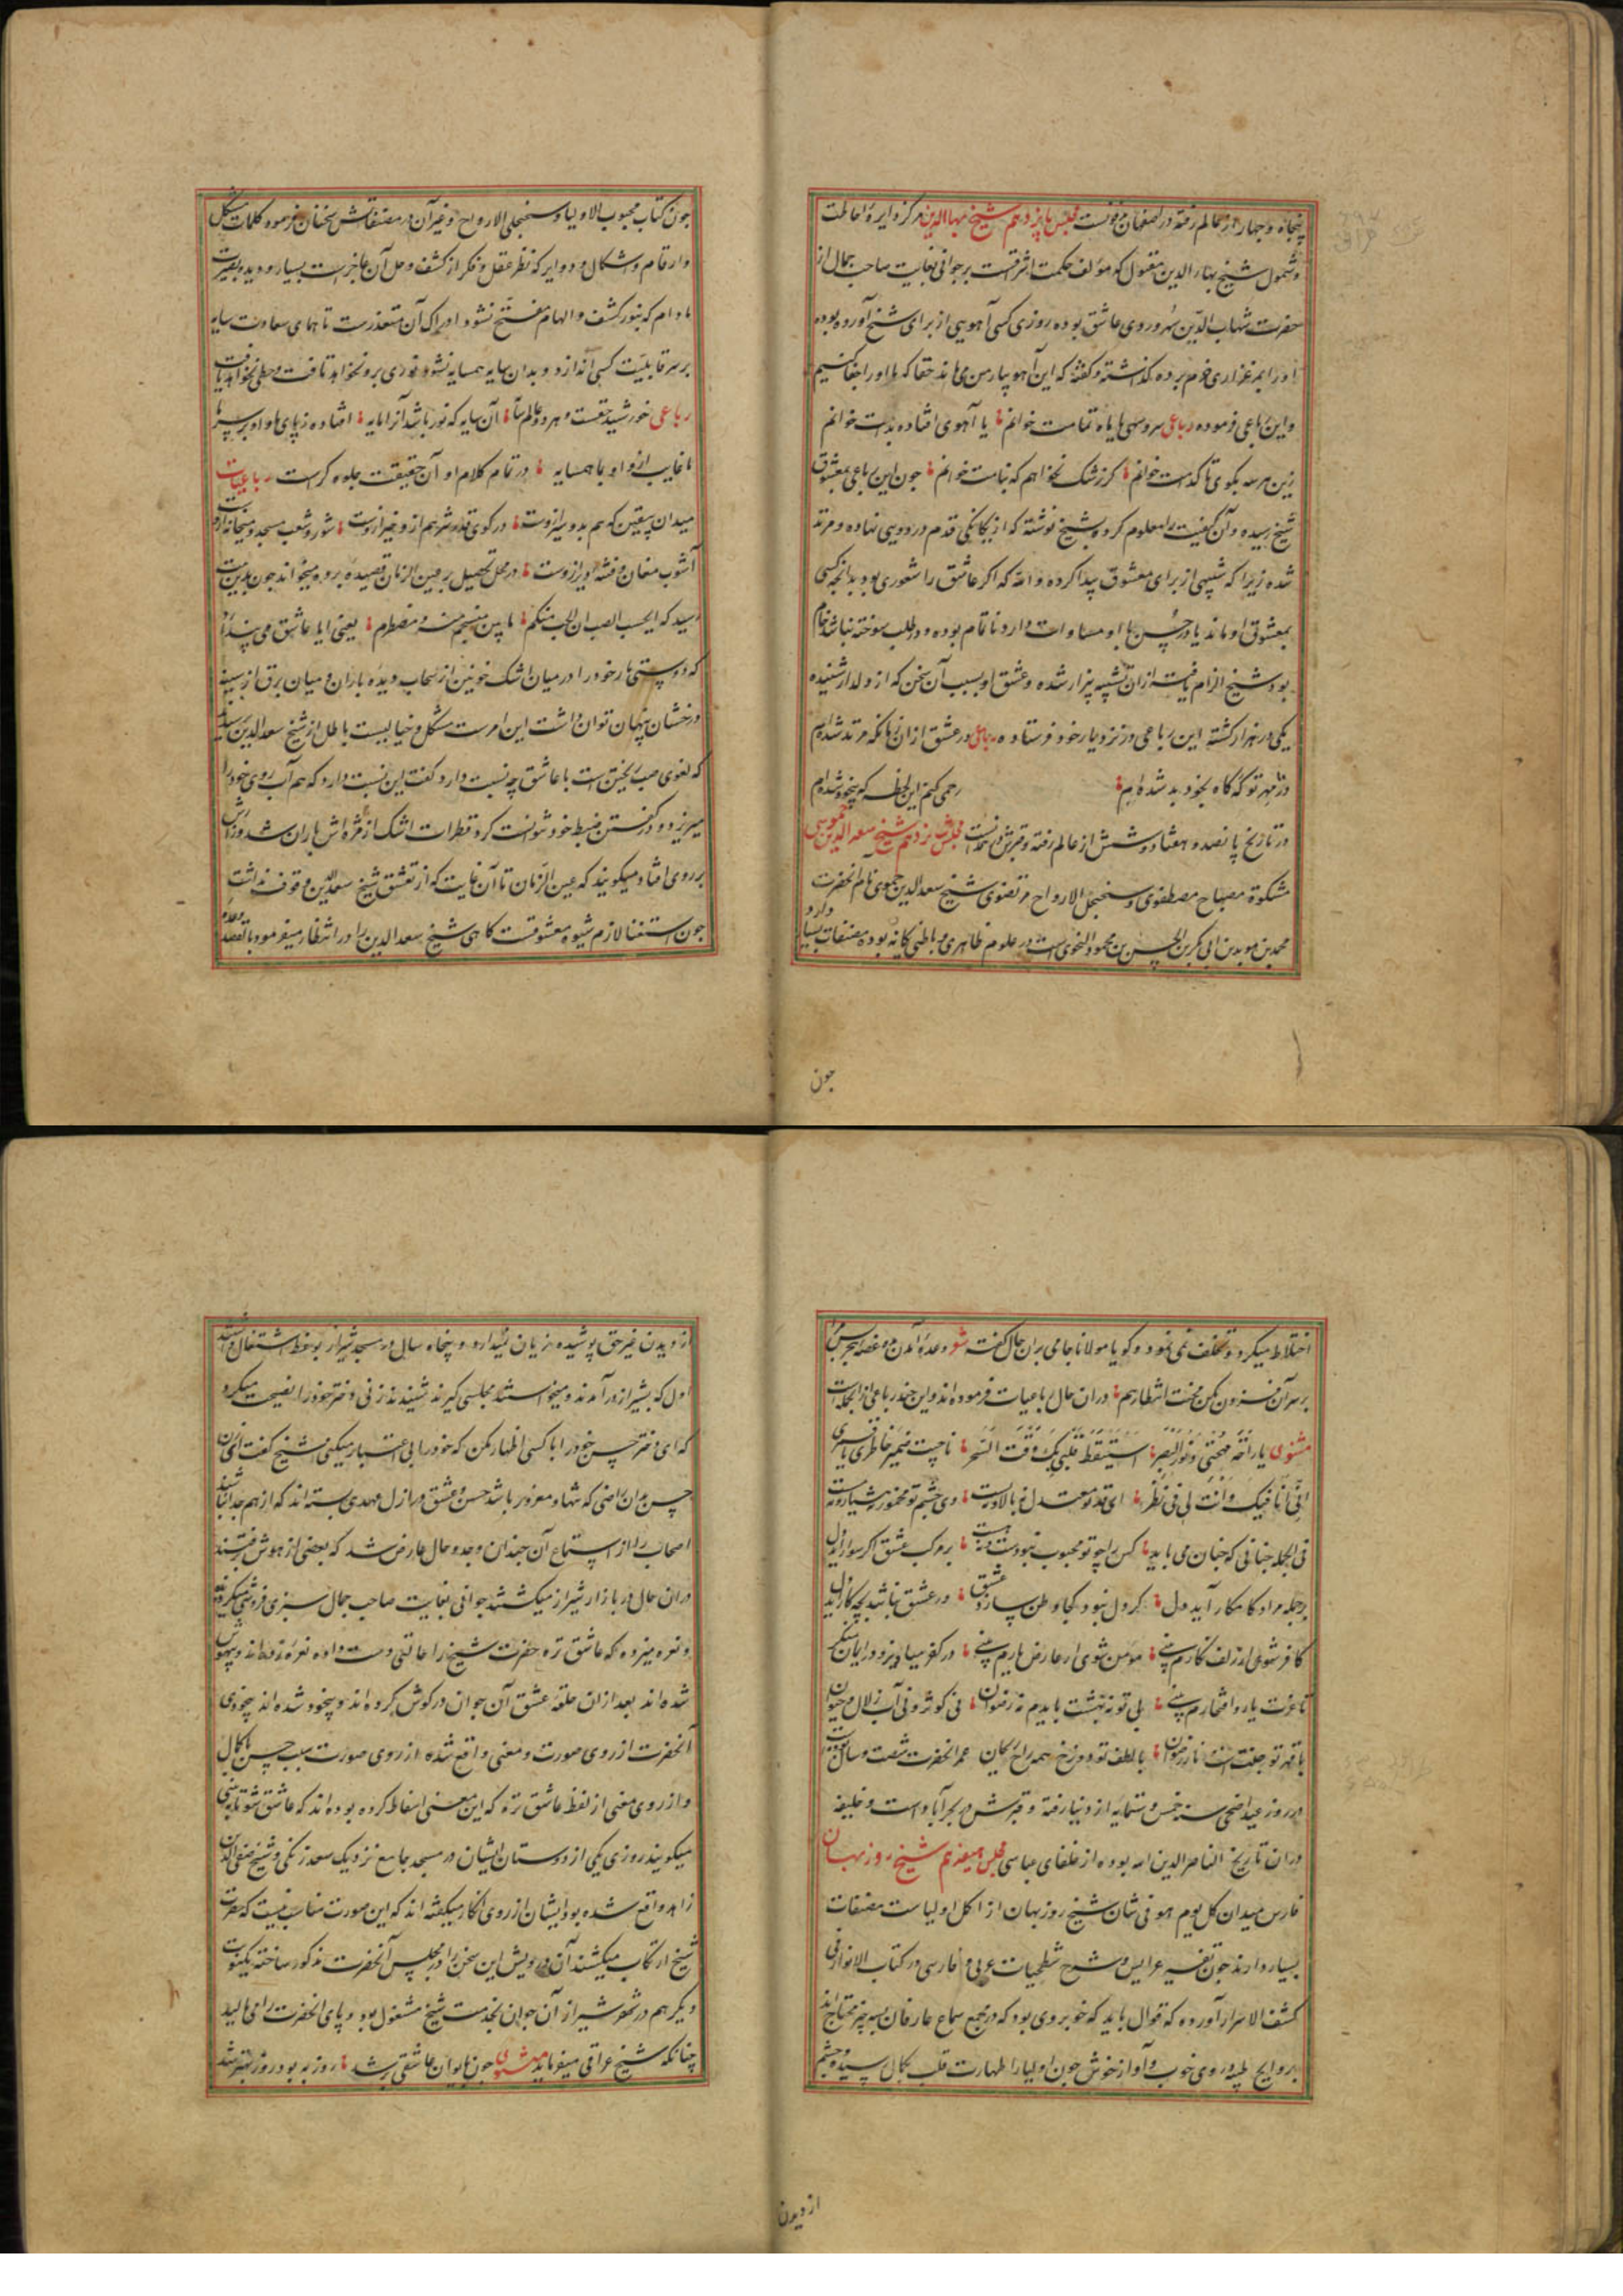 پنجاه و چهار از عالم رفته در اصفهان مدفونست مجلس پانزدهم شیخ بهاالدین مرکز دایره احاطت
و شمول شیخ بهاء الدین مقتول که مؤلف حکمت اشراقست بر جوانی بغایت صاحب جمال از
حضرت شهاب الدین سهروردی عاشق بوده روزی کسی آهویی از برای شیخ آورده بوده
او را بمرغزاری خرم برده گذاشته و گفته که این آهو بیار من می ماند حقا که با او را جفا کنیم
و این رباعی فرموده رباعی سرو سهی یا ماه تمامت خوانم یا آهوی افتاده بدامت خوانم
زین هر سه بکوی تا کدامت خوانم کز رشک نخواهم که بنامت خوانم چون این رباعی بمعشوق
شیخ رسیده و آن کیفیت را معلوم کرده بشیخ نوشته که از یگانگی قدم در دویی نهاده و مرتد
شده زیرا که شبیهی از برای معشوق پیدا کرده و الله که اگر عاشق را شعوری بود بدانچه کسی
بمعشوق او ماند یا در حسن با او مساوات دارد ناتمام بوده و در طلب سوخته نباشد خام
بود شیخ الزام یافته ازان تشبیه بیزار شده و عشق او بسبب آن سخن که از دلدار شنیده
یکی در هزار گشته این رباعی در نزد یار خود فرستاده رباعی در عشق ازان زمانکه مرتد شده ایم
در مهر تو که گاه بخود بد شده ایم رحمی کنم این لحظه که بیخود شده ایم
در تاریخ پانصد و هفتاد و شش از عالم رفته و قبرش در مجلس شانزدهم شیخ سعد الدین حموی
مشکوة مصباح مصطفوی و سنجبل الارواح مرتضوی شیخ سعد الدین حموی نام آنحضرت
محمد بن موید بن ابی بکر بن الحسن بن محمود الحموی است در علوم ظاهری و باطنی یگانه بوده مصنفات بسیار دارد
چون
چون کتاب محبوب الاولیا و سنجبل الارواح و غیر آن در مصنفاتش سخنان فرموده کلمات مشکل
و ارقام و اشکال و دوایر که نظر عقل و فکر از کشف و حل آن عاجز است بسیار و دیده بصیرت
مادام که بنور کشف و الهام منفتح نشود ادراک آن متعذرست تا همای سعادت سایه
بر سر قابلیت کسی اندازد و بدان سایه همسایه نشود نوری برو نخواهد تافت و حظی نخواهد یافت
رباعی خورشید حقست و هر دو عالم سایه آن سایه که نور باشد آنرا مایه افتاده ز پای ما و او بر سر ما
ما غایب ازو او بما همسایه در تمام کلام او آن حقیقت جلوه گرست رباعیات
میدان بیقین که هم بدو نیز ازوست در کوی قدر شر هم ازو خیر ازوست شور و شعب مسجد و میخانه ازوست
آشوب مغان و فتنه دیر ازوست در محل تحصیل بر عین الزمان قصیده برده میخواند چون بدین بیت
رسید که ایحسب الصب ان الحب منکتم ما بین منسجم منه و مضطرم یعنی ایا عاشق می پندارد
که دوستی یار خود را در میان اشک خونین از سحاب دیده باران و میان برق از سینه
درخشان پنهان توان داشت این امرست مشکل و خیالیست باطل از شیخ سعد الدین پرسید
که لغوی صب ریختن است با عاشق چه نسبت دارد گفت این نسبت دارد که هم آب روی خود را
میریزد و در گفتن ضبط خود نتوانست کرد قطرات اشک از مژه اش باران شد
بر روی افتاد میگویند که عین الزمان تا آن غایت که از تعشق شیخ سعد الدین وقوف نداشت
چون استغنا لازم شیوه معشوقست گاهی شیخ سعد الدین را در انتظار میفرمود با قصد وعده
اختلاط میکرد و تخلف می نمود و گویا مولانا جامی بر آن حال گفته شعر وعده آمدن مده غصه هجر بس مرا
بر سر آن فزون مکن محنت انتظار هم در ان حال رباعیات فرموده اند و این چند رباعی از انجمله است
مثنوی یا راحة مهجتی و نور البصر استیقظ قلبی بک وقت السحر ناجیت ضمیر خاطری یا قمری
انی انا فیک و انت لی فی نظر ای قد تو معتدل نه بالا و نه پست وی چشم تو مخمور نه هشیار و نه مست
فی الجمله چنانی که چنان می باید کس را چو تو محبوب نبودست و نه هست بر مرکب عشق اگر سوار آید دل
بر جمله مراد کامکار آید دل گر دل نبود کجا وطن سازد عشق ور عشق نباشد بچه کار آید دل
کافر شوی ار زلف نگارم بینی مومن شوی ار عارض یارم بینی در کفر میاویز و در ایمان منگر
تا عزت یار و افتخارم بینی بی تو نه بهشت بایدم نه رضوان نی کوثر و نی آب زلال حیوان
با قهر تو جنت است نار رضوان با لطف تو دوزخ همه ریحان عمر آنحضرت شصت و سال بوده
در روز عید اضحی سنه خمس و ستمایه از دنیا رفته و قبرش در بحرآباد است و خلیفه
در ان تاریخ الناصر الدین الله بوده از خلفای عباسی مجلس هفدهم شیخ روزبهان
فارس میدان کل یوم هو فی شان شیخ روزبهان از اکل اولیاست مصنفات
بسیار دارند چون تفسیر عرایس و شرح شطحیات عربی و فارسی در کتاب الانوار فی
کشف الاسرار آورده که قوال باید که خوبروی بود که در مجمع سماع عارفان بسه چیز محتاج اند
بروایح طیبه و روی خوب و آواز خوش چون اولیا را طهارت قلب بکمال رسیده چشم
از دیدن
از دیدن غیر حق پوشیده زیان نمیدارد و پنجاه سال در مسجد شیراز بوعظ اشتغال داشتند
اول که بشیراز در آمدند و میخواستند مجلسی گیرند شنیدند زنی دختر خود را نصیحت میکرد
که ای دختر حسن خود را با کسی اظهار مکن که خود را بی اعتبار میکنی شیخ گفت ای زن
حسن بدان راضی که تنها و معزور باشد حسن و عشق در ازل عهدی بسته اند که از هم جدا نباشند
اصحاب را از استماع آن چندان وجد و حال عارض شد که بعضی از هوش رفتند
در ان حال در بازار شیراز میگشتند جوانی بغایت صاحب جمال سبزی فروشی میکرده
و نعره میزده که عاشق تره حضرت شیخ را حالتی دست داده نعره زده اند و بیهوش
شده اند بعد ازان حلقه عشق آن جوان در گوش کرده اند و بیخود شده اند بیخودی
آنحضرت از روی صورت و معنی واقع شده از روی صورت بسبب حسن با کمال
و از روی معنی از لفظ عاشق تره که این معنی استنباط کرده بوده اند که عاشق شو تا بینی
میگویند روزی یکی از دوستان ایشان در مسجد جامع نزدیک سعد زنگی و شیخ صفی الدین
زاهد واقع شده بود ایشان از روی انکار میگفته اند که این صورت مناسب نیست که حضرت
شیخ ارتکاب میکنند آن درویش این سخن را در مجلس آنحضرت مذکور ساخته یکنوبت
دیگر هم در شهر شیراز آن جوان بخدمت شیخ مشغول بود و پای آنحضرت را می مالید
چنانکه شیخ عراقی میفرماید مثنوی چون بایوان عاشقی بر شد روز به بود روز بهتر شد